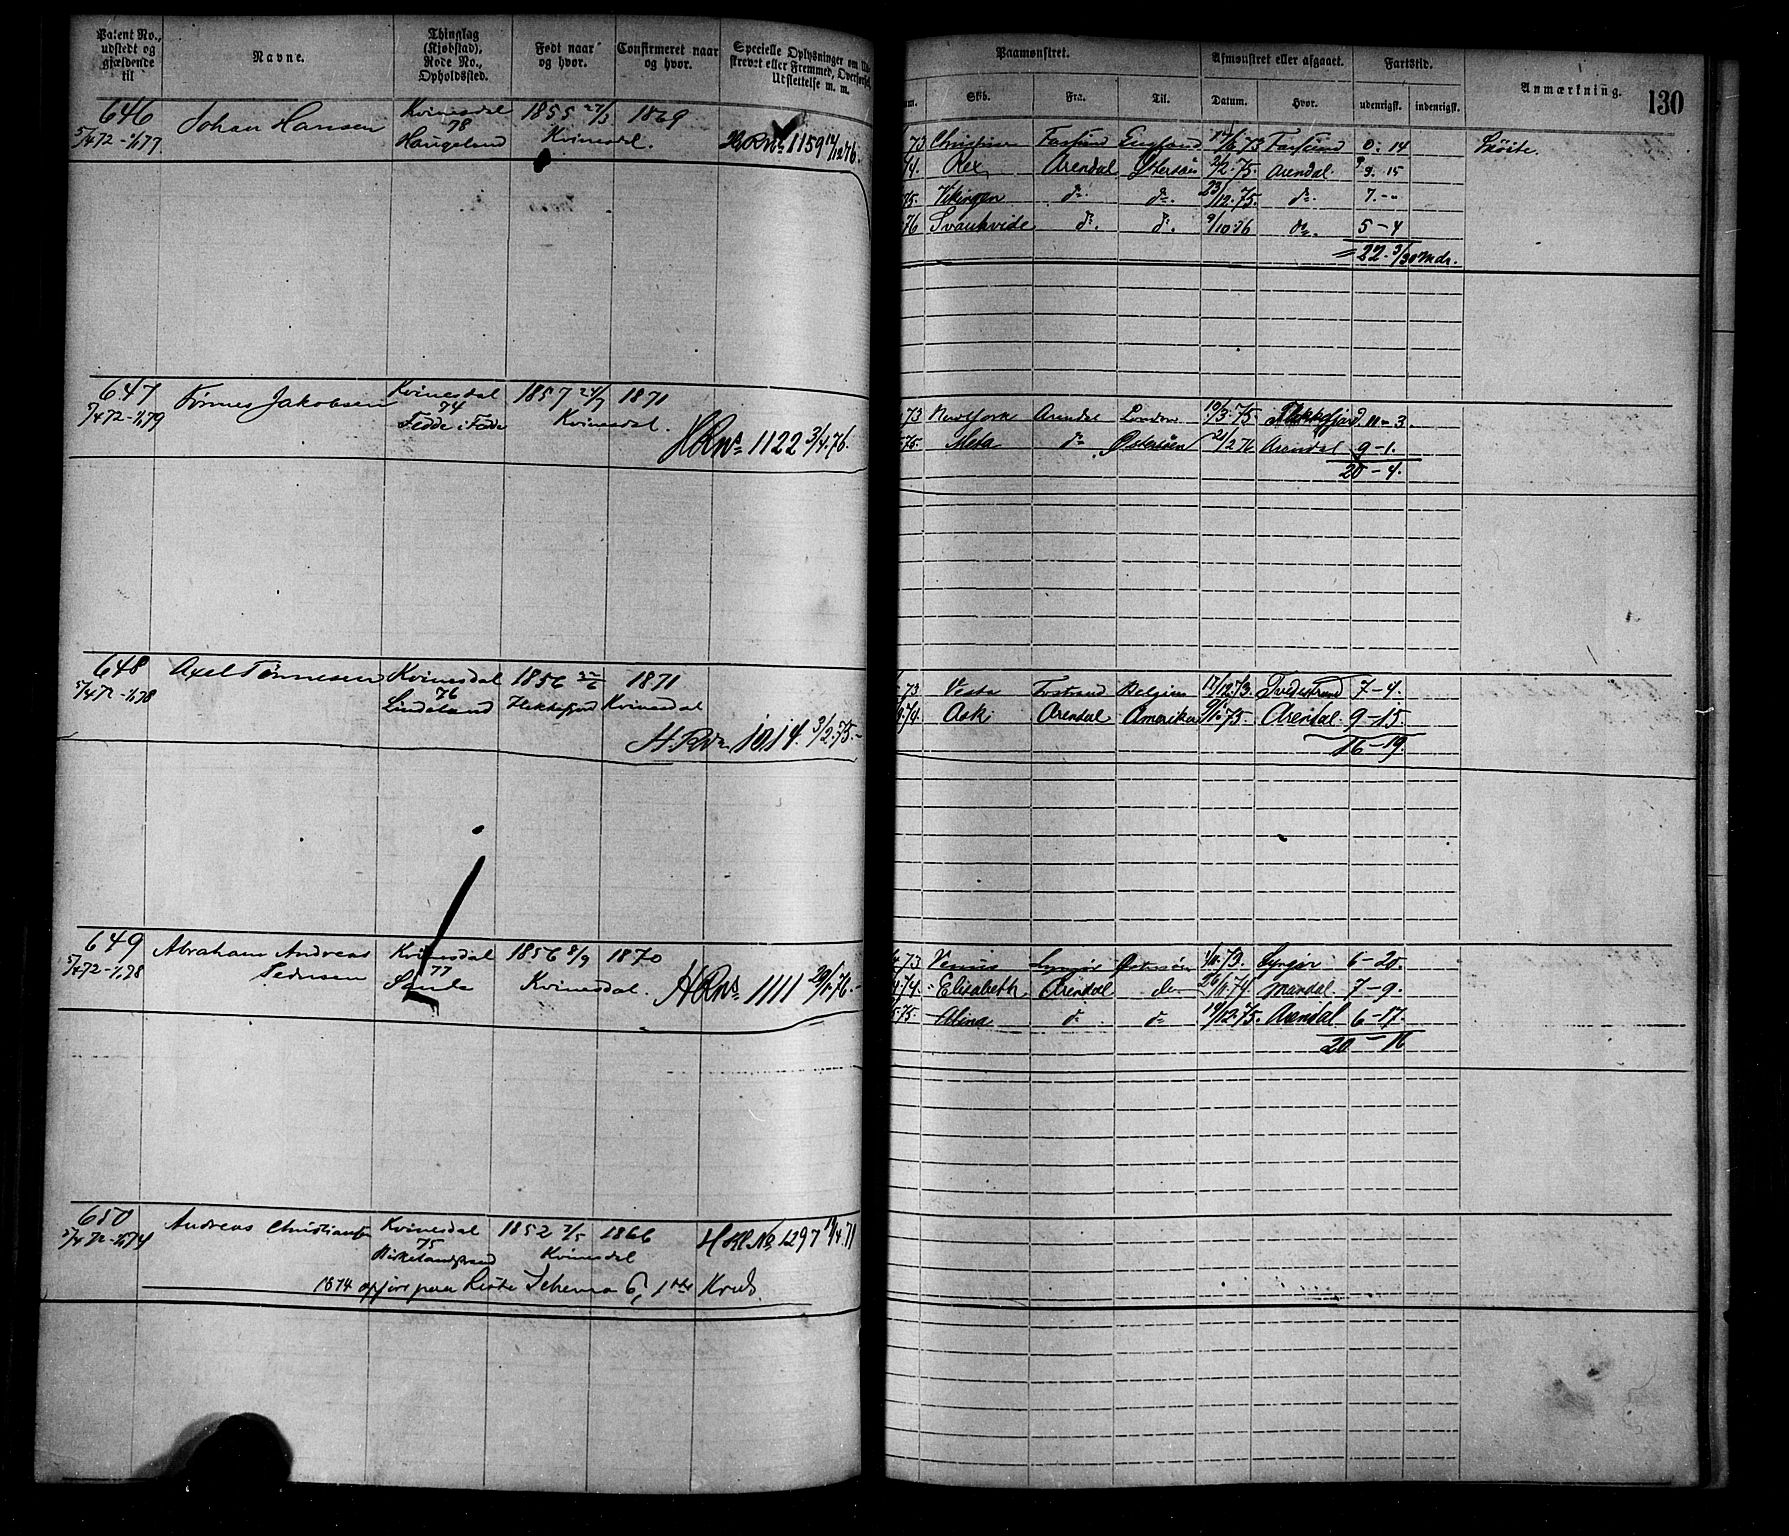 Patent No., udstedt og gjældende til
Navne.
Thinglag (Kjøbstad), Rode No., Opholdssted.
Født naar og hvor.
Confirmeret naar og hvor.
Specielle Oplysninger om
strevet eller Fremmed, Overførsel,
Utslettelse m. m.
Paamønstret.
Afmønstret eller afgaaet.
Fartstid.
Anmærkning.
130
Skib.
Fra.
Til.
Datum.
Hvor.
udenrigsk.
indenrigsk.
646 Johan Hansen Kvinesdal 1855 27/3 1869
5/4 72 - 1/1 77. 78 Haugeland Kvinesdal. 1159 14/12 76.
73 Farsund England 73 Farsund 0. 14 Skøite.
74. Rex Arendal Østersøen 2/2 75. Arendal. 9. 15
75. Vikingen do do 23/12. 75. do 7. -
76 Svanhvide do. do. 9/10 76 do. 5 - 4
= 22. 3/30 Mdr.
647 Tønnes Jakobsen Kvinesdal 1857 24/7 1871
5/4 72 - 1/1 79 74 Fedde i Fedde Kvinesdal.
H R No 1122 3/4. 76.
73 New York Arendal London 10/3. 75. Flekkefjord. 11 - 3.
75. Meta do Østersøen 21/2 76 Arendal 9 - 1.
20 - 4.
648 Axel Tønnesen Kvinesdal 1856 22/6 1871
5/4 72 - 1/1 78 76 Lindeland Flekkefjord Kvinesdal
H R No 1014. 3/2. 75.
73 Vesta Belgien 17/12 73. Tvedestrand 7 - 4.
74. Ask Arendal Amerika 75. Arendal. 9 - 15.
16 - 19.
649 Abraham Andreas Kvinesdal 1856 8/9 1870
5/4 72 - 1/1 78 Pedersen 77 Kvinesdal. H R No 1111 29/1. 76.
73 Venus Lyngør Østersøen 73. Lyngør 6 - 20.
74. Elisabeth Arendal do 74 Mandal 7 - 9.
75. Alina do do 14/12. 75. Arendal 6 - 17.
20 - 16
650 Andreas Christiansen Kvinesdal 1852 2/5 1866 1297 71
5/4 72 - 1/1 74 75 Birkelandstrand Kvinesdal
1874 opført paa Liste Schema 6, 1ste Kreds.